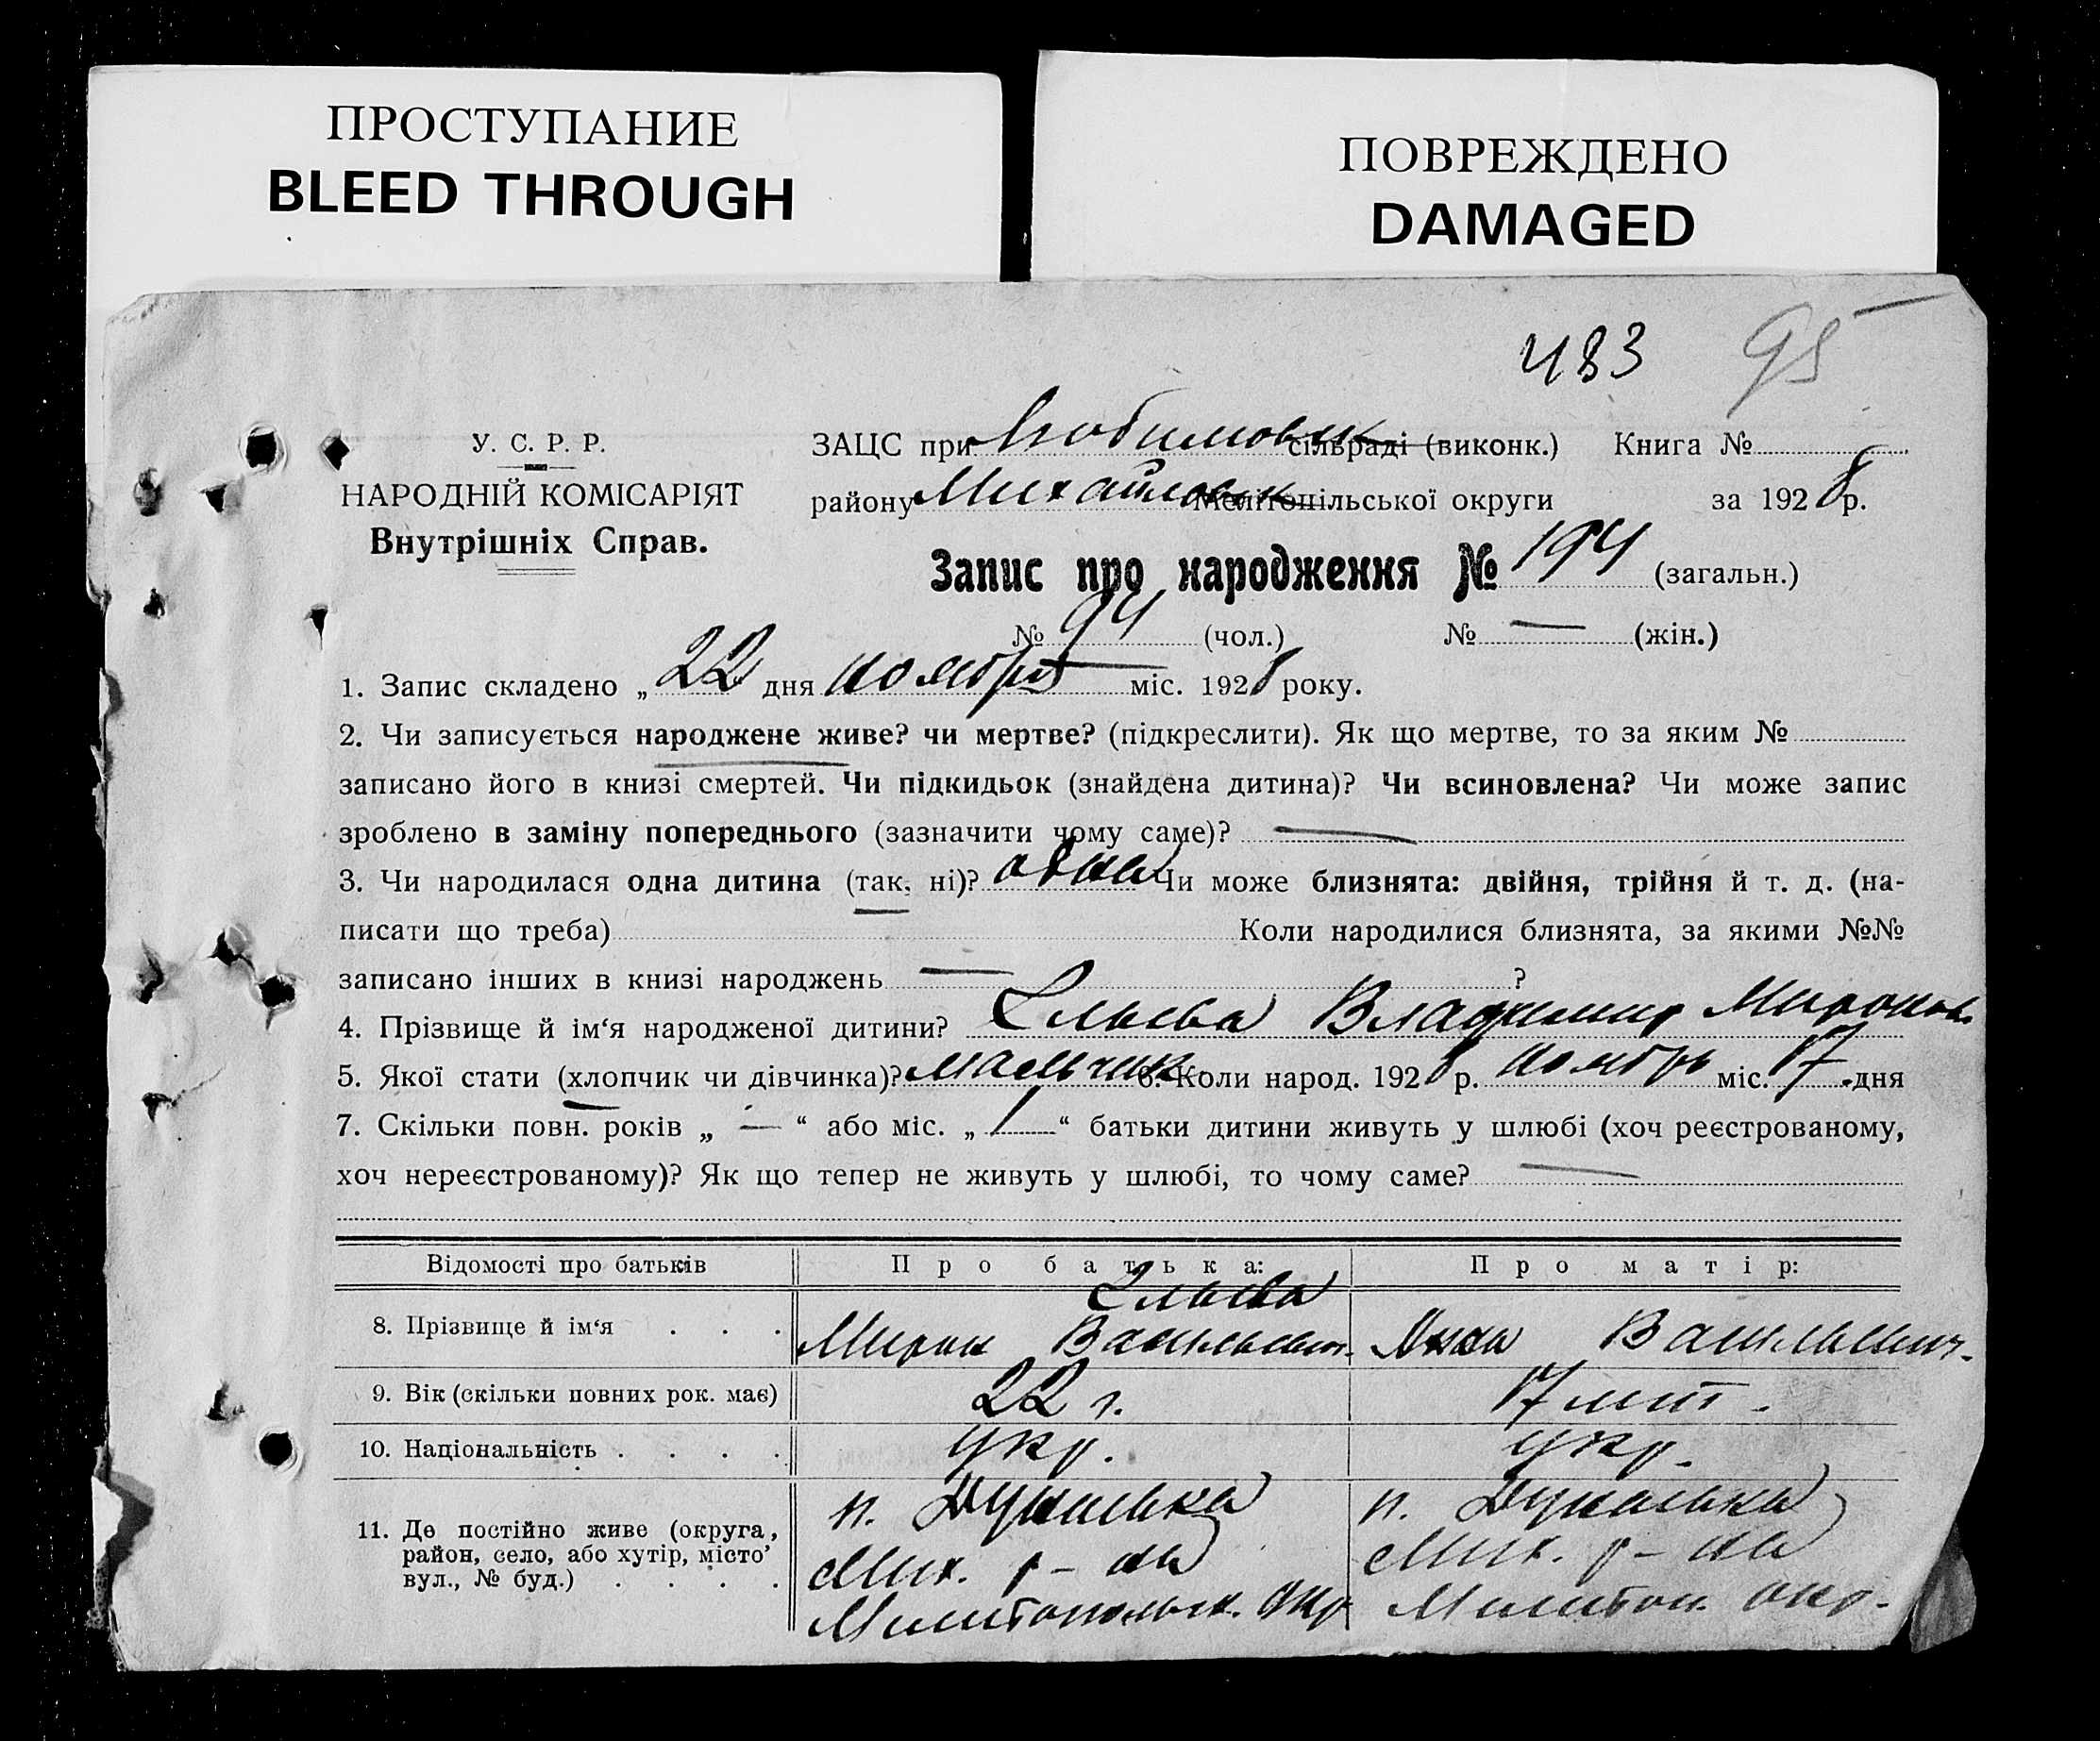 ПРОСТУПАНИЕ
BLEED THROUGH
ПОВРЕЖДЕНО
DAMAGED
483 95
У. С. Р. Р.
НАРОДНІЙ КОМІСАРІЯТ
Внутрішніх Справ.
ЗАЦС при Любимовск сільраді (виконк.) Книга №
району Михайловск Мелітопільської округи за 1928 р.
Запис про народження № 194 (загальн.)
№ 94 (чол.) № — (жін.)
1. Запис складено „ 22 " дня ноября міс. 1928 року.
2. Чи записується народжене живе? чи мертве? (підкреслити). Як що мертве, то за яким №
записано його в книзі смертей. Чи підкидьок (знайдена дитина)? Чи всиновлена? Чи може запис
зроблено в заміну попереднього (зазначити чому саме)? —
3. Чи народилася одна дитина (так, ні)? одна Чи може близнята: двійня, трійня й т. д. (на-
писати що треба) Коли народилися близнята, за якими №№
записано інших в книзі народжень — ?
4. Прізвище й ім‘я народженої дитини? Ельсва Владимир Миронов.
5. Якої стати (хлопчик чи дівчинка)? мальчик 6. Коли народ. 1928 р. ноябрь міс. 17 дня
7. Скільки повн. років „ — “ або міс. „ 1 “ батьки дитини живуть у шлюбі (хоч реєстрованому,
хоч нереєстрованому)? Як що тепер не живуть у шлюбі, то чому саме? —
Відомості про батьків Про батька: Про матір:
8. Прізвище й ім‘я . . . Ельсва
Мирон Васильевич. Анна Васильевич.
9. Вік (скільки повних рок. має) 22 г. 17 лет.
10. Національність . . . . укр. укр.
11. Де постійно живе (округа,
район, село, або хутір, місто’
вул., № буд.) . . . .
п. Дунаевка
Мих. р-на
Мелитопольск. окр
п. Дунаевка
Мих. р-на
Мелитоп. окр.